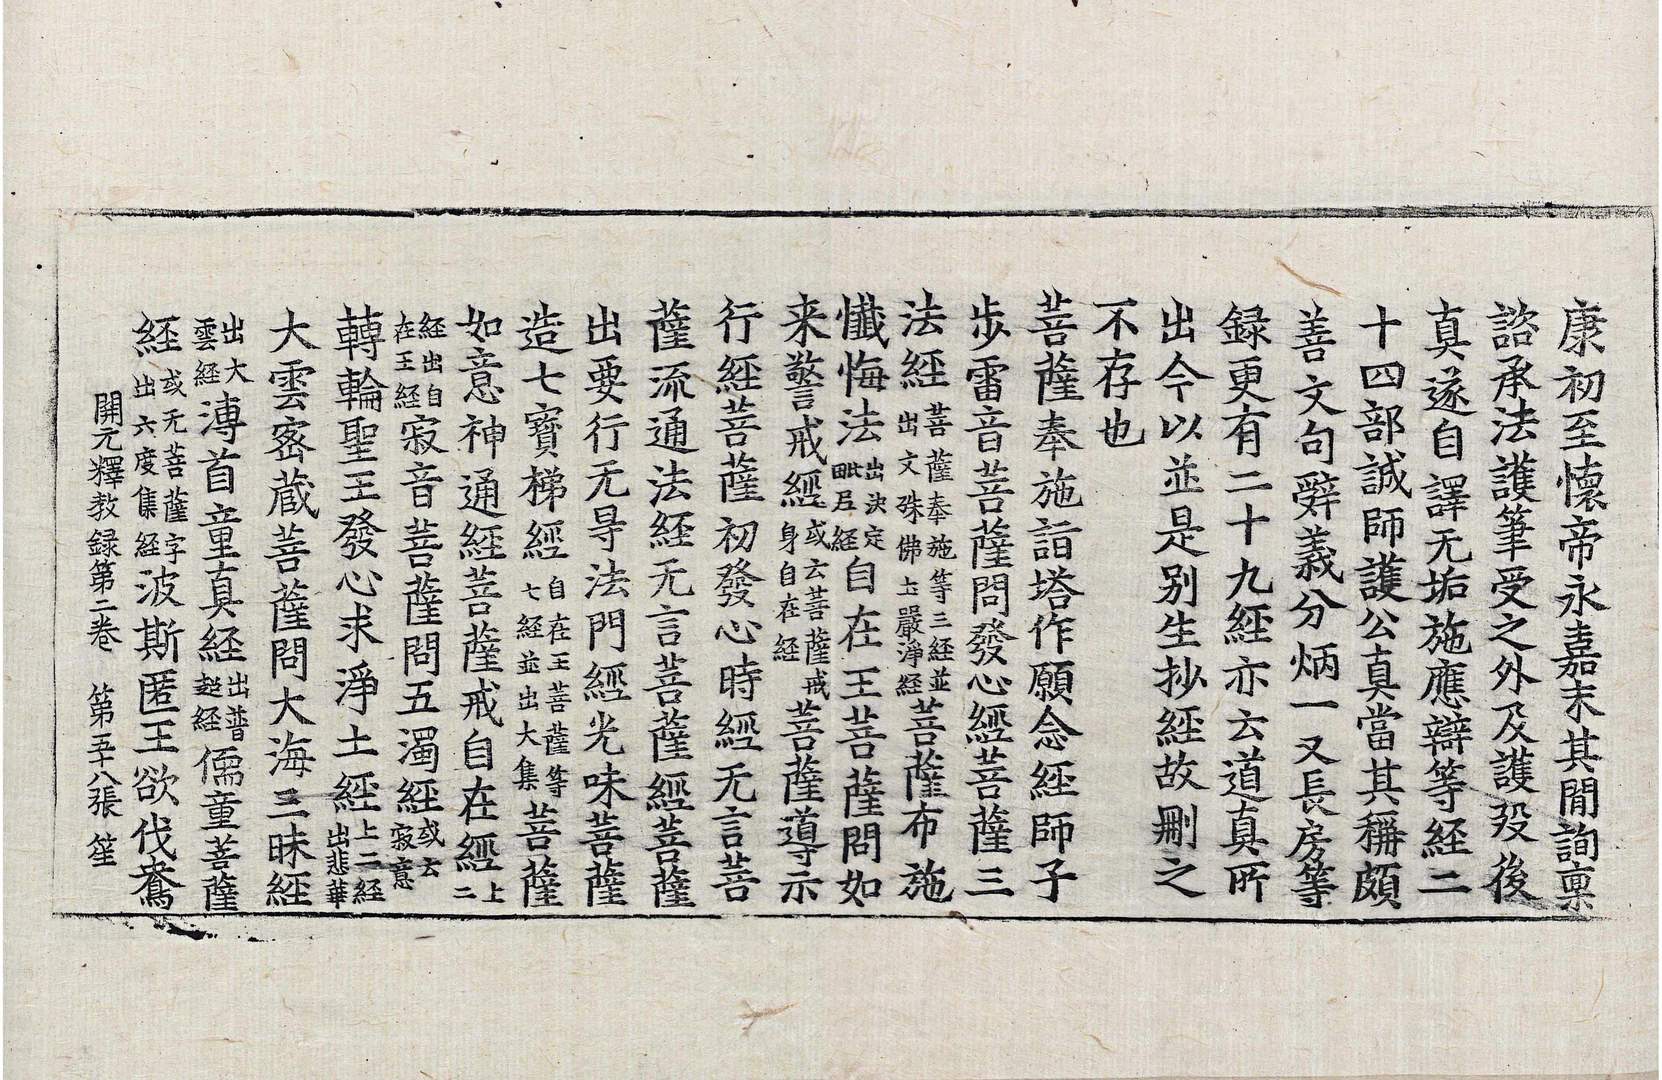 康初至懷帝永嘉末其間詢稟
諮承法護筆受之外及護歿後
真遂自譯无垢施應辯等經二
十四部誠師護公真當其稱頗
善文句辤義分炳一又長房等
録更有二十九經亦云道真所
出今以並是别生抄經故刪之
不存也
菩薩奉施詣塔作願念經師子
步雷音菩薩問發心經菩薩三
法經菩薩奉施等三經並出文殊佛土嚴淨經菩薩布施
懺悔法出決定毗尼經自在王菩薩問如
来警戒經或云菩薩戒身自在經菩薩導示
行經菩薩初發心時經无言菩
薩流通法經无言菩薩經菩薩
出要行无㝵法門經光味菩薩
造七寶梯經自在王菩薩等七經並出大集菩薩
如意神通經菩薩戒自在經上二
經出自在王經寂音菩薩問五濁經或云寂意
轉輪聖王發心求淨土經上二經出悲華
大雲密蔵菩薩問大海三昧經
出大雲經溥首童真經出普超經儒童菩薩
經或无菩薩字出六度集經波斯匿王欲伐鴦
開元釋教録第二卷　第五十八張　笙